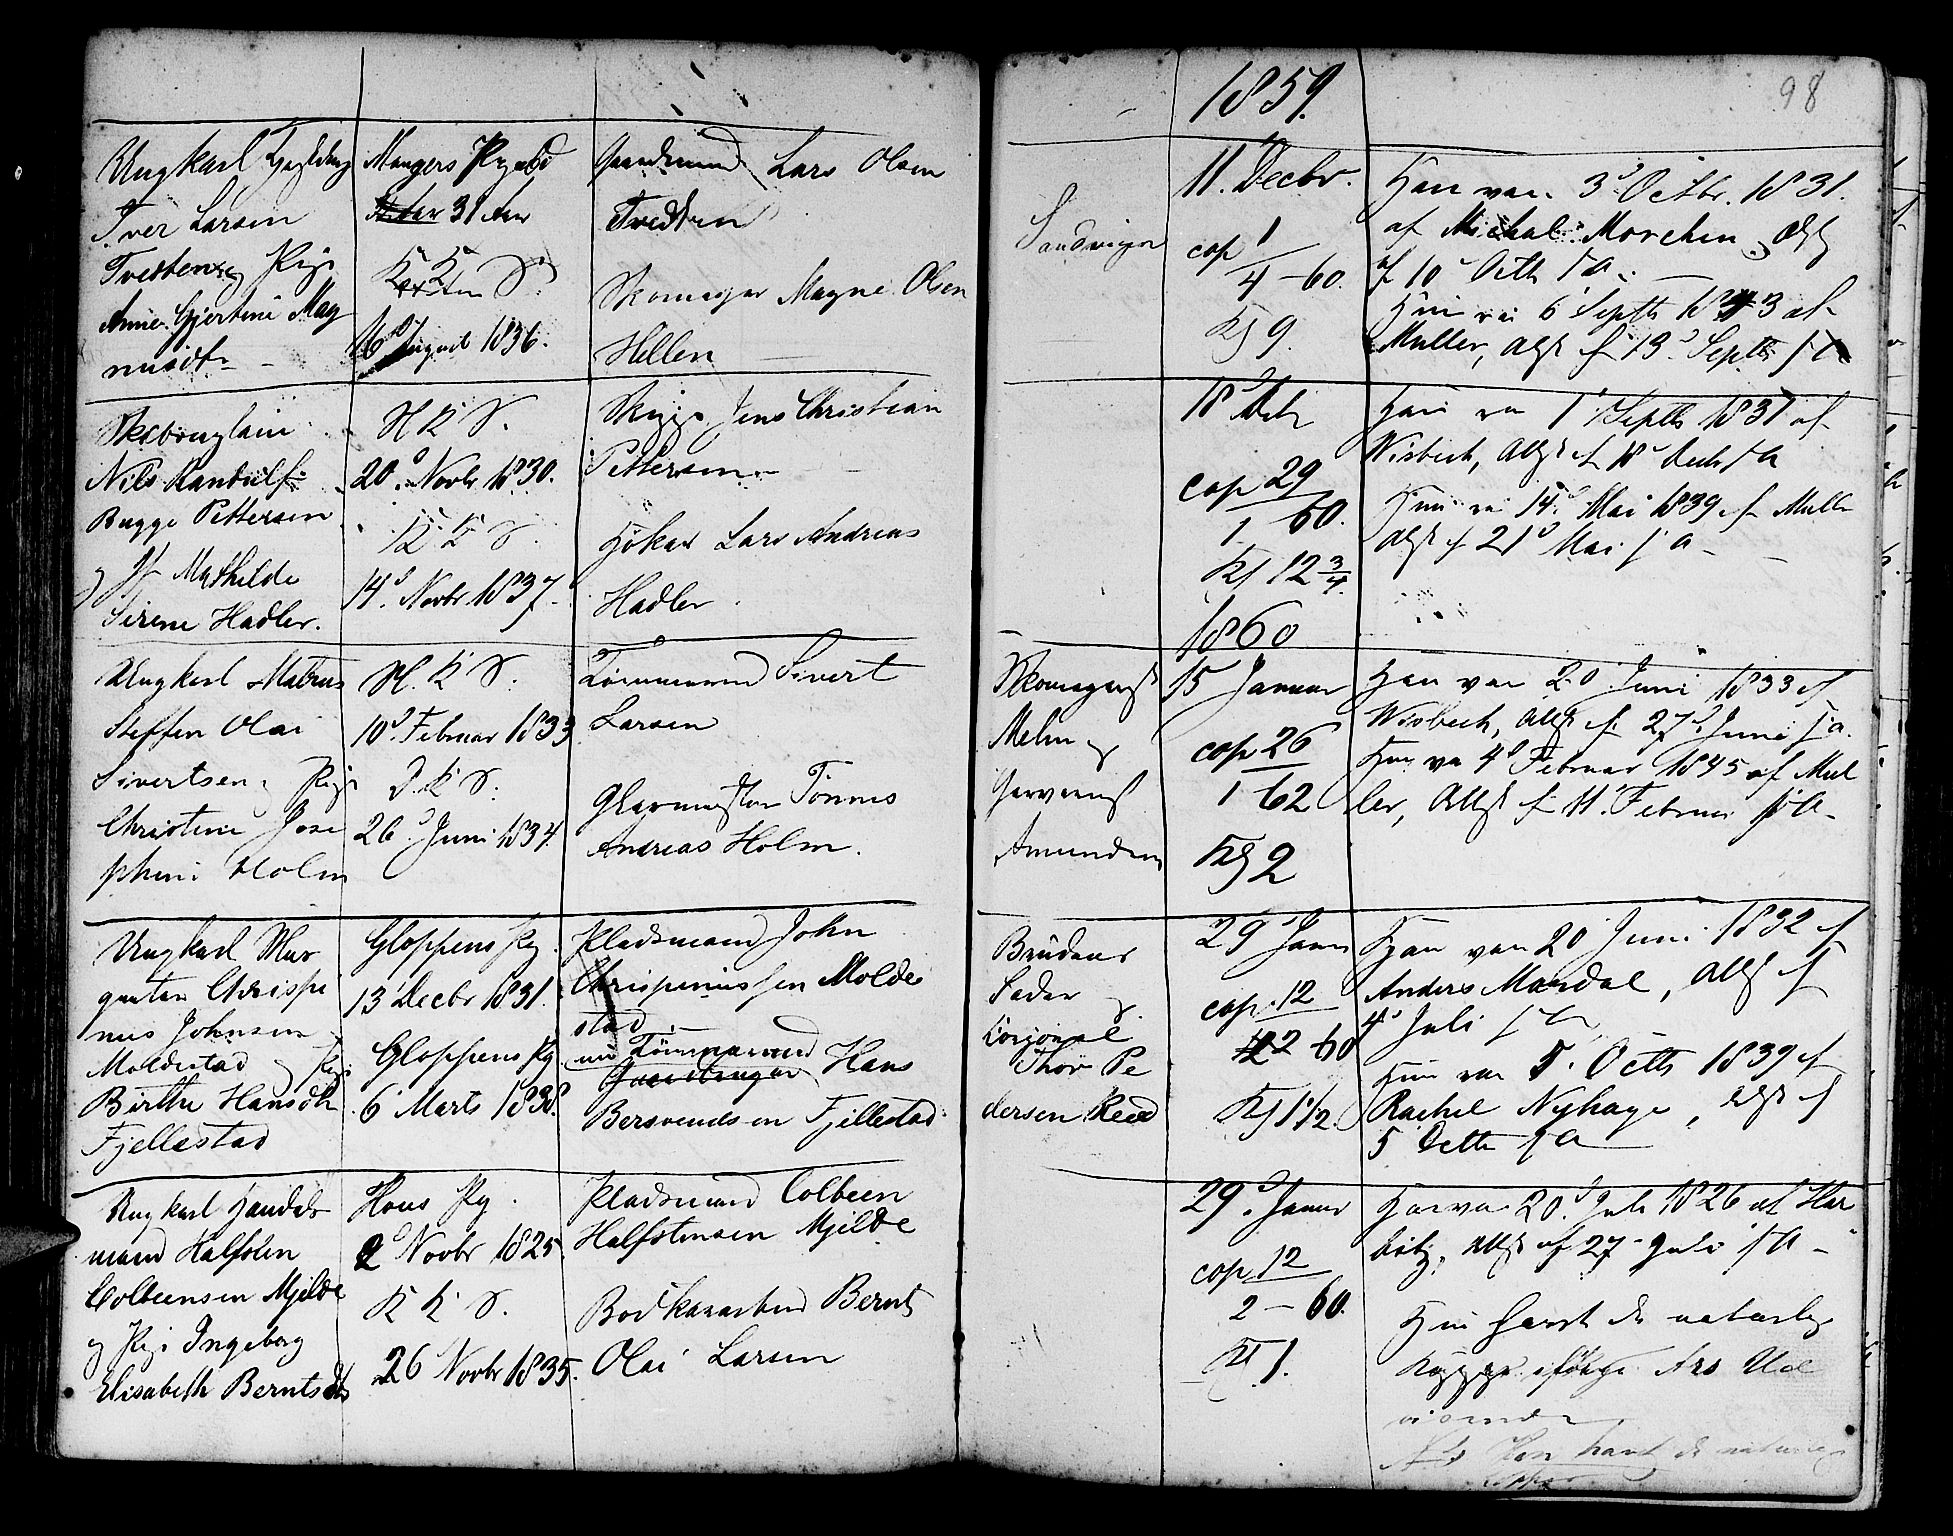 98
1859.
Ungkarl
Iver Larsen
Tvedten og Pige
Anne Gjertine Mag
nusdtr
Mangers Pgjeld
31 Aar
K K D.
16 August 1836.
Gaardmand Lars Olsen
Tvedten
Skomager Magne Olsen
Hellen
Sandvigen
11. Decbr.
cop 1
4 - 60.
Kj 9.
Han vac. 3d Octbr. 1831.
af Michal Morchen, Attst
af 10d Octb s A.
Hun va 6 Septb 1843 af
Muller, Attst af 13d Septb s A
Nils Randulf
Bugge Pettersen
og Jf Mathilde
Sirene Hadler.
N K D.
20d Novbr 1830.
K K D.
14d Novbr 1837.
Skipp. Jens Christian
Pettersen
Høker Lars Andreas
Hadler.
18d Decbr
cop 29
1 60.
Kj 12 3/4.
Han va 1 Septb 1831 af
Wisbech, Attst af 18d Decb s A
Hun va 14d Mai 1839 af Mull
Attst af 21d Mai s A
1860
Ungkarl Matnus
Steffen Olai
Sivertsen og Pige
Christine Jose
phine Holm
N. K D.
10d Februar 1833
D K D.
26d Juni 1834.
Tømmermand Sivert
Larsen
Glarmester Tønnes
Andreas Holm.
Skomagerst
Melin og
Garverst
Amundsen
15 Januar
cop 26
1 62
Kj 2
Han var 20 Juni 1833 af
Wisbech, Attst af 27d Juni s A.
Hun va 4d Februar 1845 af Mul
ler, Attst af 11d Februar s A.
Ungkarl Mar
guster Chrispi
nus Johnsen
Moldestad og Pige
Birthe Hansdtr
Fjellestad
Gloppens Pg.
13 Decbr 1831.
Gloppens Pg
6 Marts 1838.
Pladsmand John
Chrispinussen Molde
stad
nu Tømmermand
Hans
Bersvendsen Fjellestad
Brudens
Fader og
Thor Pe
dersen Reed
29d Janr
cop. 12
2 60
Kj 1 1/2.
Han var 20 Juni 1832 af
Anders Mandal, Attst af
4d Juli s A
Hun var 5. Octb 1839 af
Rachel Nyhage, Attst af
5 Octb s A
Ungkarl Handels
mand Halfsten
Colbeensen Mjelde
og Pige Ingeborg
Elisabeth Berntsdtr
Hous Pg.
2d Novbr 1825
K K D.
26 Novbr 1835.
Pladsmand Colbeen
Halfstensen Mjelde
Bødkersvend Bernt
Olai Larsen
29d Januar
cop 12
2 - 60.
Kj 1.
Han va 20d Juli 1826 af Har
bitz, Attst af 27 Juli s A
Hun havt de naturlige
Kopper ifølge Ars Ud
visende
Hun havt de naturlige